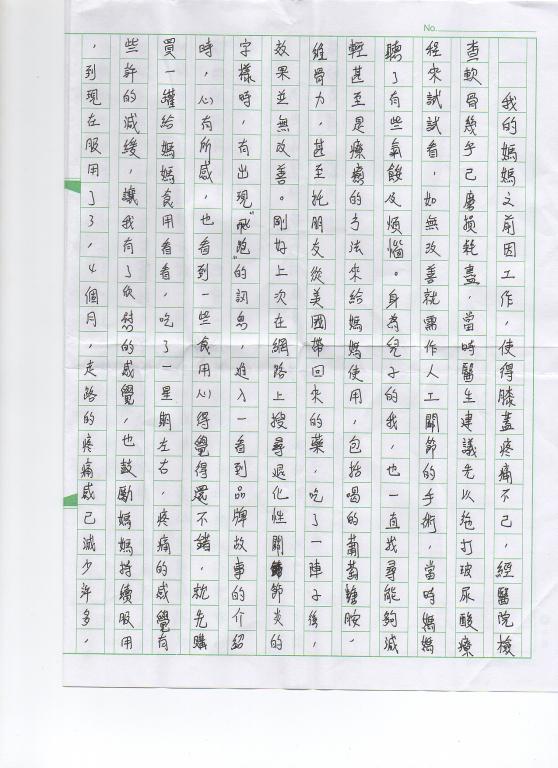 No.
我的媽媽之前因工作，使得膝蓋疼痛不已，經醫院檢
查軟骨幾乎已磨損耗盡，當時醫生建議先以施打玻尿酸療
程來試試看，如無改善就需作人工關節的手術，當時媽媽
聽了有些氣餒及煩惱。身為兒子的我，也一直找尋能夠減
輕甚至是療癒的方法來給媽媽使用，包括喝的葡萄糖胺，
維骨力，甚至托朋友從美國帶回來的藥，吃了一陣子後，
效果並無改善。剛好上次在網路上搜尋退化性關節炎的
字樣時，有出現"飛跑"的訊息，進入一看到品牌故事的介紹
時，心有所感，也看到一些食用心得覺得還不錯，就先購
買一罐給媽媽食用看看，吃了一星期左右，疼痛的感覺有
些許的減緩，讓我有了欣慰的感覺，也鼓勵媽媽持續服用
，到現在服用了3，4個月，走路的疼痛感已減少許多，